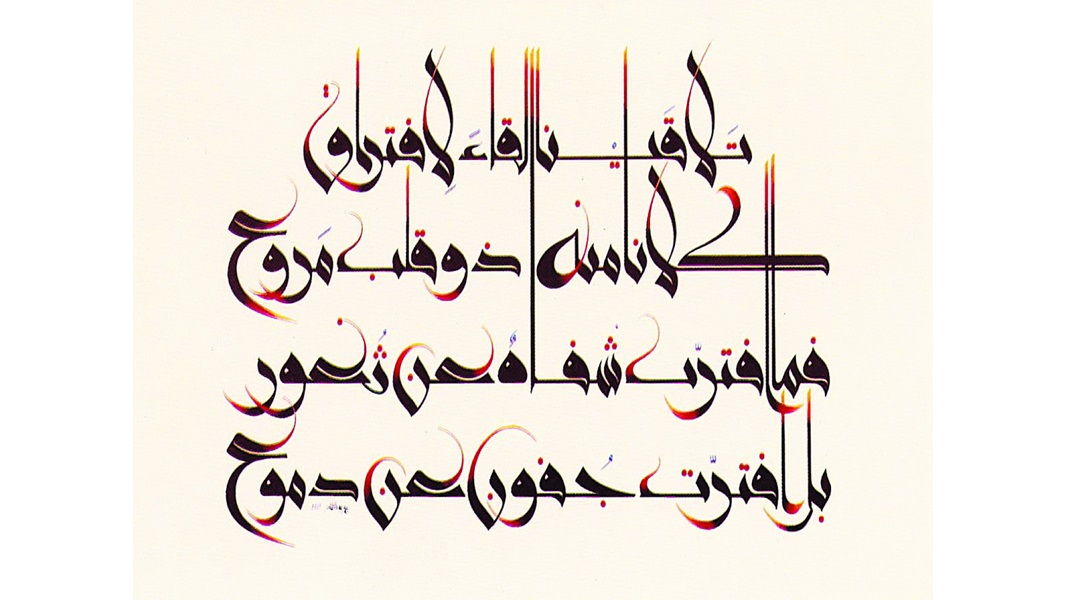 تَلاقَيْنا لقاءً لِافتراق
كلانا منه ذو قلب مَروع
فما افترّت شفاهٌ عن ثُغور
بل افترّت جُفون عن دموع